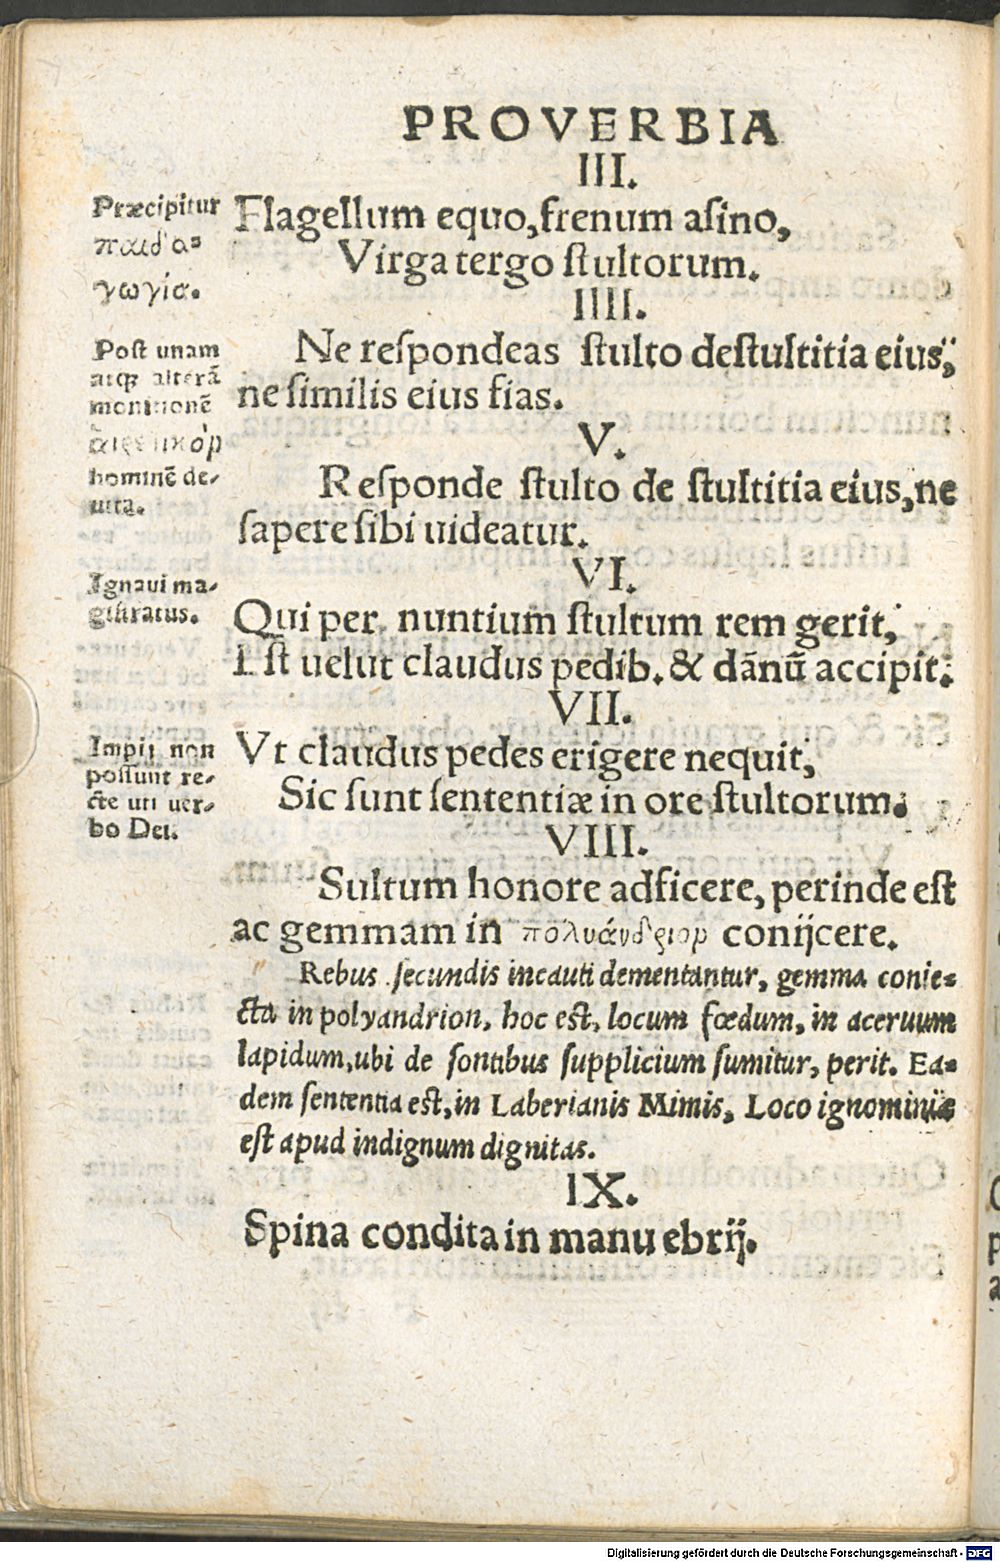 PROVERBIA
III.
Præcipitur
παιδα-
γωγία.
Flagellum equo, frenum asino,
Virga tergo stultorum.
IIII.
Post unam
atq; alterã
monitionẽ
hominẽ de-
uita.
Ne respondeas stulto destultitia eius,
ne similis eius fias.
V.
Responde stulto de stultitia eius, ne
sapere sibi uideatur.
VI.
Ignaui ma-
gistratus.
Qui per nuntium stultum rem gerit,
Est uelut claudus pedib. & dãnũ accipit.
VII.
Impij non
possunt re-
cte uti uer-
bo Dei.
Vt claudus pedes erigere nequit,
Sic sunt sententiæ in ore stultorum.
VIII.
Sultum honore adficere, perinde est
ac gemmam in πολυάνδριον conijcere.
Rebus secundis incauti dementantur, gemma conie-
cta in polyandrion, hoc est, locum fœdum, in aceruum
lapidum, ubi de sontibus supplicium sumitur, perit. Ea-
dem sententia est, in Laberianis Mimis, Loco ignominiæ
est apud indignum dignitas.
IX.
Spina condita in manu ebrij.
Digitalisierung gefördert durch die Deutsche Forschungsgemeinschaft - DFG